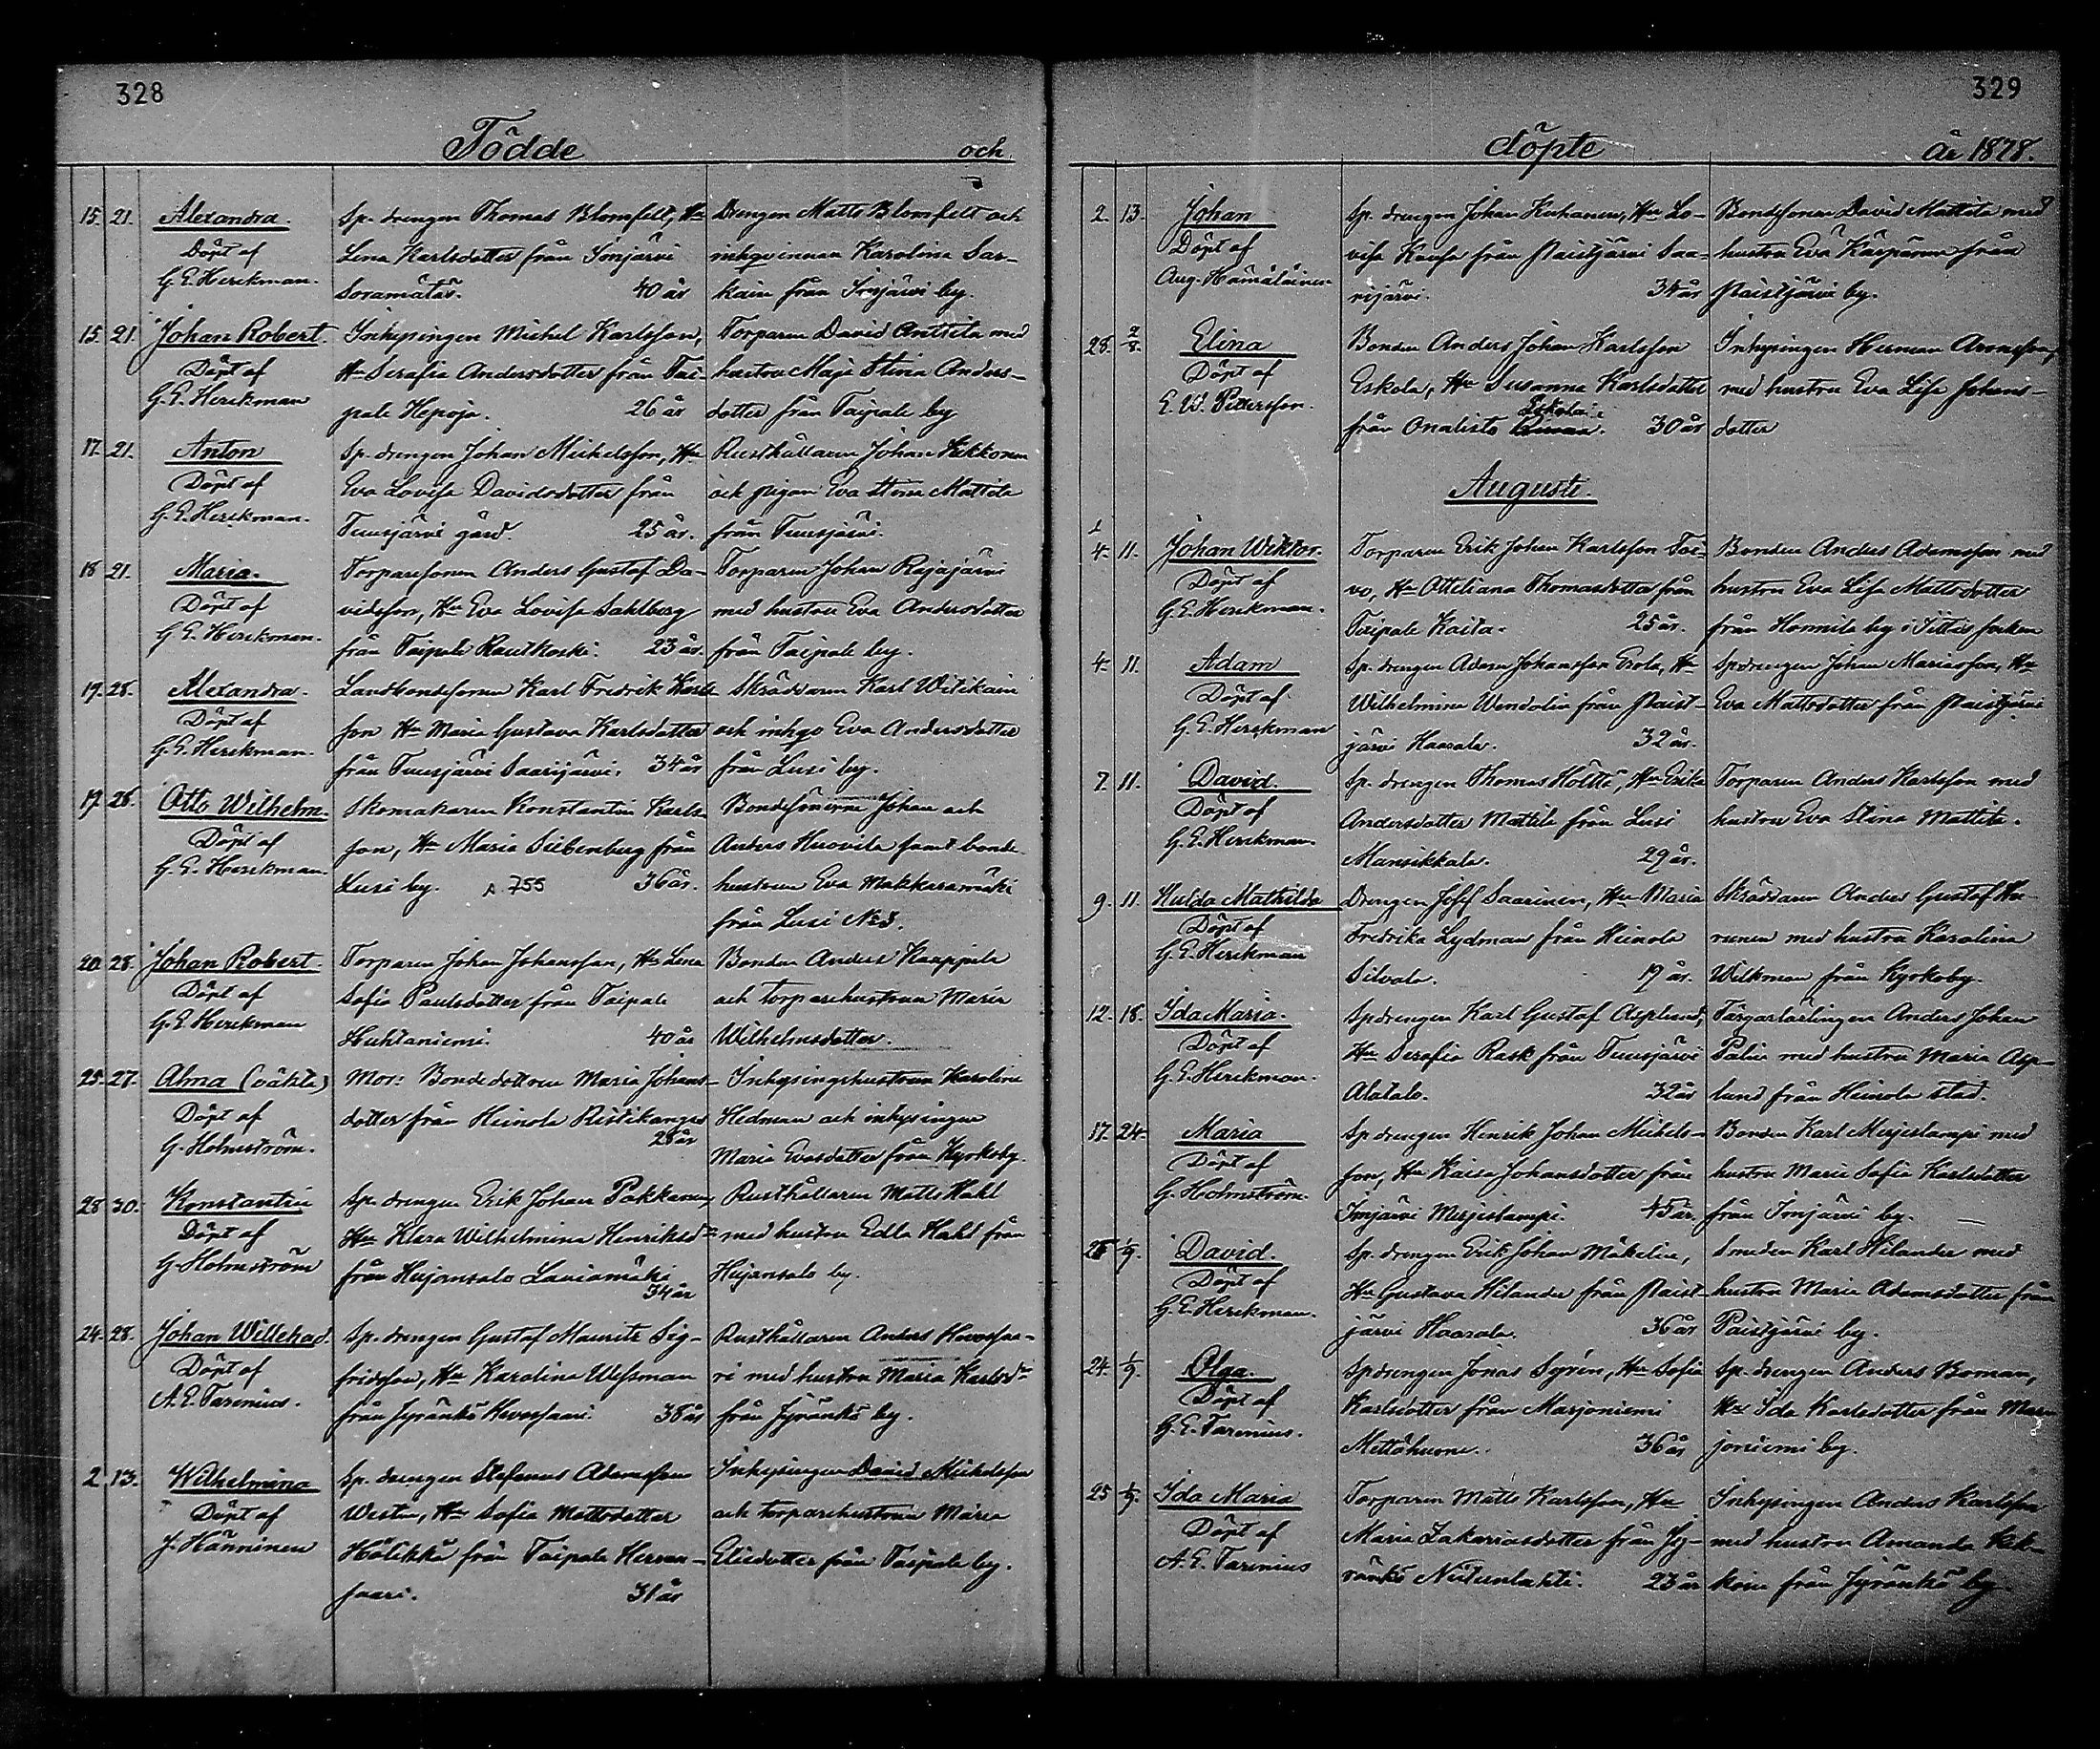 328
Födde och
15. 21. Alexandra. Sp. drengen Thomas Blomfelt, Hu Drengen Matts Blomfelt och
Döpt af Lena Karlsdotter från Imjärvi inhqvinnan Karolina Sar-
G. E. Herckman. Soramätäs. 40 år kain från Imjärvi by.
15. 21. Johan Robert. Inhysingen Michel Karlsson, Torparen David Anttila med
Döpt af Hu Serafia Andersdotter från Tai- hustru Maja Stina Anders-
G. E. Herckman pale Hepoja. 26 år dotter från Taipale by
17. 21. Anton Sp. drengen Johan Michelsson, Hu Rusthållaren Johan Kekkonen
Döpt af Eva Lovisa Davidsdotter från och pigan Eva Stina Mattila
G. E. Herckman. Tuusjärvi gård. 25 år. från Tuusjärvi.
18 21. Maria. Torparesonen Anders Gustaf Da- Torparen Johan Rajajärvi
Döpt af vidsson, Hu Eva Lovisa Sahlberg med hustru Eva Andersdotter
G. E. Herckman. från Taipale Rautkoski. 23 år. från Taipale by.
19. 28. Alexandra. Landbondesonen Karl Fredrik Karls- Skräddaren Karl Witikain
Döpt af son Hu Maria Gustava Karlsdotter och inhqv Eva Andersdotter
G. E. Herckman. från Tuusjärvi Saarijärvi. 34 år från Lusi by.
19. 28. Otto Wilhelm. Skomakaren Konstantin Karls- Bondesönerne Johan och
Döpt af son, Hu Maria Silbenberg från Anders Huovila samt bonde-
G. E. Herckman. Lusi by. s. 755 36 år. hustrun Eva Makkaramäki
från Lusi No 3.
20. 28. Johan Robert Torparen Johan Johansson, Hu Lena Bonden Anders Kaappila
Döpt af Sofia Paulsdotter från Taipale och torparehustrun Maria
G. E. Herckman Huhtaniemi. 40 år Wilhelmsdotter.
25. 27. Alma (oäkta) Mor: Bondedottern Maria Johans- Inhysingehustrun Karolina
Döpt af dotter från Heinola Ristikangas Hedman och inhysingen
G. Holmström. 28 år Maria Evasdotter från Kyrkoby.
28 30. Konstantin Sp. drengen Erik Johan Pakkanen, Rusthållaren Matts Hakl
Döpt af Hu Klara Wilhelmina Henriksdr med hustru Edla Hakl från
G. Holmström från Hujansalo Lauiamäki Hujansalo by.
34 år
24. 28. Johan Willehad. Sp. drengen Gustaf Maurits Sig- Rusthållaren Anders Hevossaa-
Döpt af fridsson, Hu Karolina Wessman ri med hustru Maria Karlsdr
A. E. Farenius. från Jyränkö Hevossaari. 38 år från Jyränkö by.
2. 13. Wilhelmina Sp. drengen Stefanus Adamsson Inhysingen David Michelsson
Döpt af Westin, Hu Sofia Mattsdotter och torparehustrun Maria
J. Hänninen Hölikkä från Taipale Hirvan- Eliedotter från Taipale by.
saari. 31 år
329
döpte År 1878.
2. 13. Johan Sp. drengen Johan Kuhanen, Hu Lo- Bondesonen David Mattila med
Döpt af visa Kausa från Paistjärvi Saa- hustru Eva Käpärin från
Aug. Hämäläinen rijärvi. 34 år Paistjärvi by.
28. 4/8. Elina Bonden Anders Johan Karlsson Inhysingen Herman Aronsson,
Döpt af Eskola, Hu Susanna Karlsdotter med hustru Eva Lisa Johans-
E. W. Pettersson. från Onalisto Eskola. 30 år dotter
Augusti.
4. 11. Johan Wiktor. Torparen Erik Johan Karlsson Tar- Bonden Anders Adamsson med
Döpt af vo, Hu Ottiliana Thomasdotter från hustru Eva Lisa Mattsdotter
G. E. Herckman. Taipale Kaita. 25 år. från Homila by i Jittis socken
4. 11. Adam Sp. drengen Adam Johansson Erola, Hu Spdrengen Johan Mariasson, Hu
Döpt af Wilhelmina Wendolin från Paist- Eva Mattsdotter från Paistjärvi
G. E. Herckman järvi Haasala. 32 år.
7. 11. David. Sp. drengen Thomas Hölttä, Hu Erika Torparen Anders Karlsson med
Döpt af Andersdotter Mattila från Lusi hustru Eva Stina Mattila.
G. E. Herckman. Mansikkala. 29 år.
9. 11. Hulda Mathilda Drengen Josef Saarinen, Hu Maria Skräddaren Anders Gustaf Ha-
Döpt af Fredrika Lydman från Heinola runen med hustru Karolina
G. E. Herckman Silvola. 19 år. Wilkman från Kyrkoby.
12. 18. Ida Maria. Spdrengen Karl Gustaf Asplund, Färgarlärlingen Anders Johan
Döpt af Hu Serafia Rask från Tuusjärvi Palin med hustru Maria Asp-
G. E. Herckman. Alatalo. 32 år lund från Heinola stad.
17. 24. Maria Sp drengen Henrik Johan Michels- Bonden Karl Merjeslampi med
Döpt af son, Hu Kaisa Johansdotter från hustru Maria Sofia Karlsdotter
G. Holmström. Imjärvi Merjeslampi. 45 år. från Imjärvi by.
25 1/9. David. Sp. drengen Erik Johan Mäkelin, Smeden Karl Hilander med
Döpt af Hu Gustava Hilander från Paist- hustru Maria Adamsdotter från
G. E. Herckman. järvi Haasala. 36 år Paistjärvi by.
24. 1/9. Olga. Spdrengen Jonas Syrén, Hu Sofia Sp. drengen Anders Boman,
Döpt af Karlsdotter från Marjoniemi Hu Ida Karlsdotter från Mar-
G. E. Farenius. Mettähuone. 36 år joniemi by.
25 1/9. Ida Maria Torparen Matts Karlsson, Hu Inhysingen Anders Karlsson
Döpt af Maria Zakariasdotter från Jy- med hustru Amanda Kek-
A. E. Farenius ränkö Niitunlahti. 23 år koin från Jyränkö by.